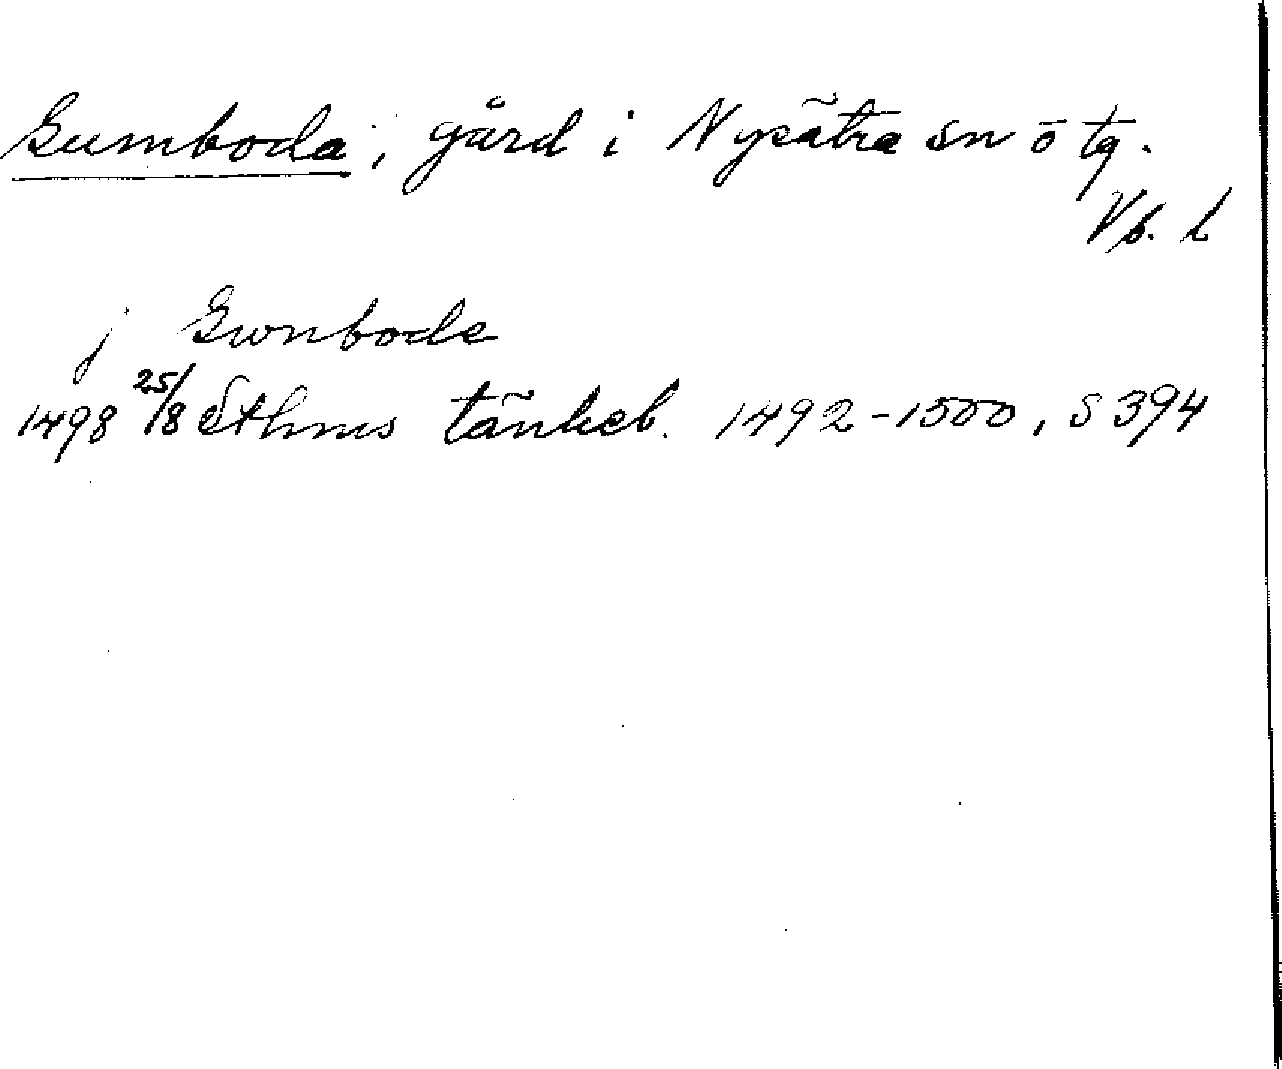 Gumboda, gård i Nysätra sn ö tg.
Vb. l
j Gwnbode
1498 25/8 Sthms tänkeb. 1492-1500, S 394